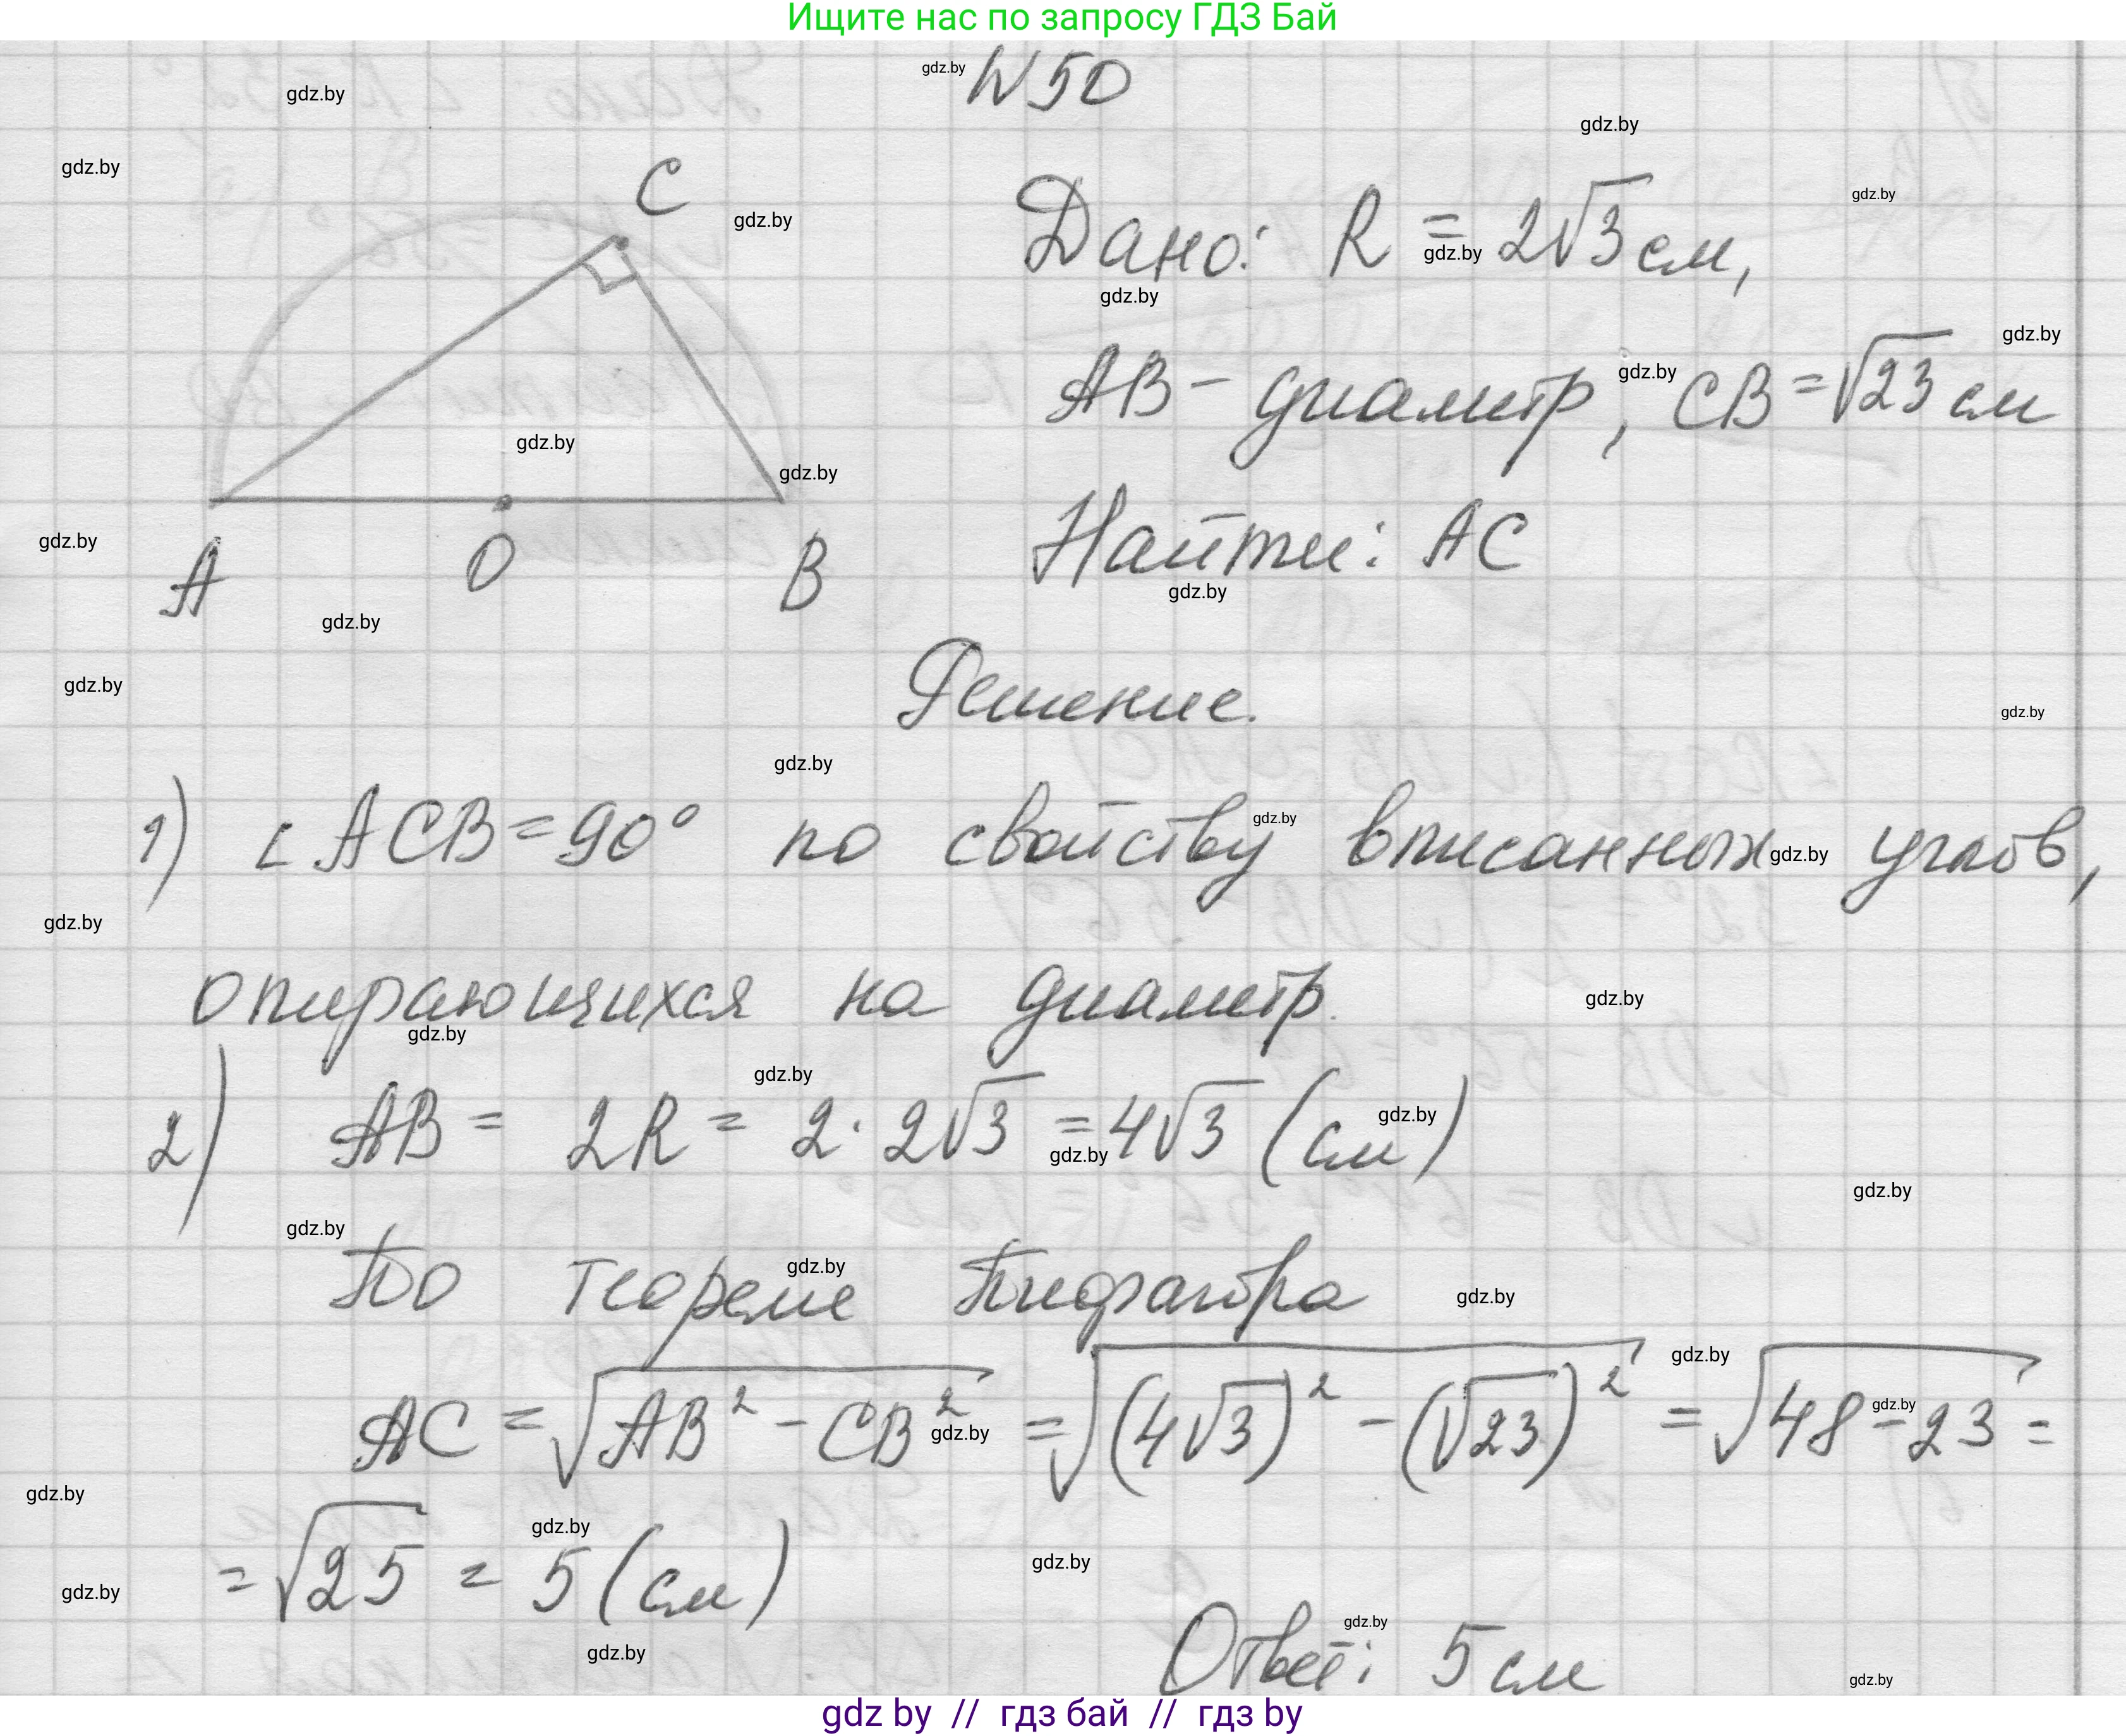 Ищите нас по запросу ГДЗ Бай
N 50
C
A O B
Дано: R = 2√3 см,
AB - диаметр, CB = √23 см
Найти: AC
Решение.
1) ∠ ACB = 90° по свойству вписанных углов,
опирающихся на диаметр.
2) AB = 2R = 2 · 2√3 = 4√3 (см)
По теореме Пифагора
AC = √(AB² - CB²) = √((4√3)² - (√23)²) = √(48 - 23) =
= √25 = 5 (см)
Ответ: 5 см
gdz by // гдз бай // гдз by
gdz.by